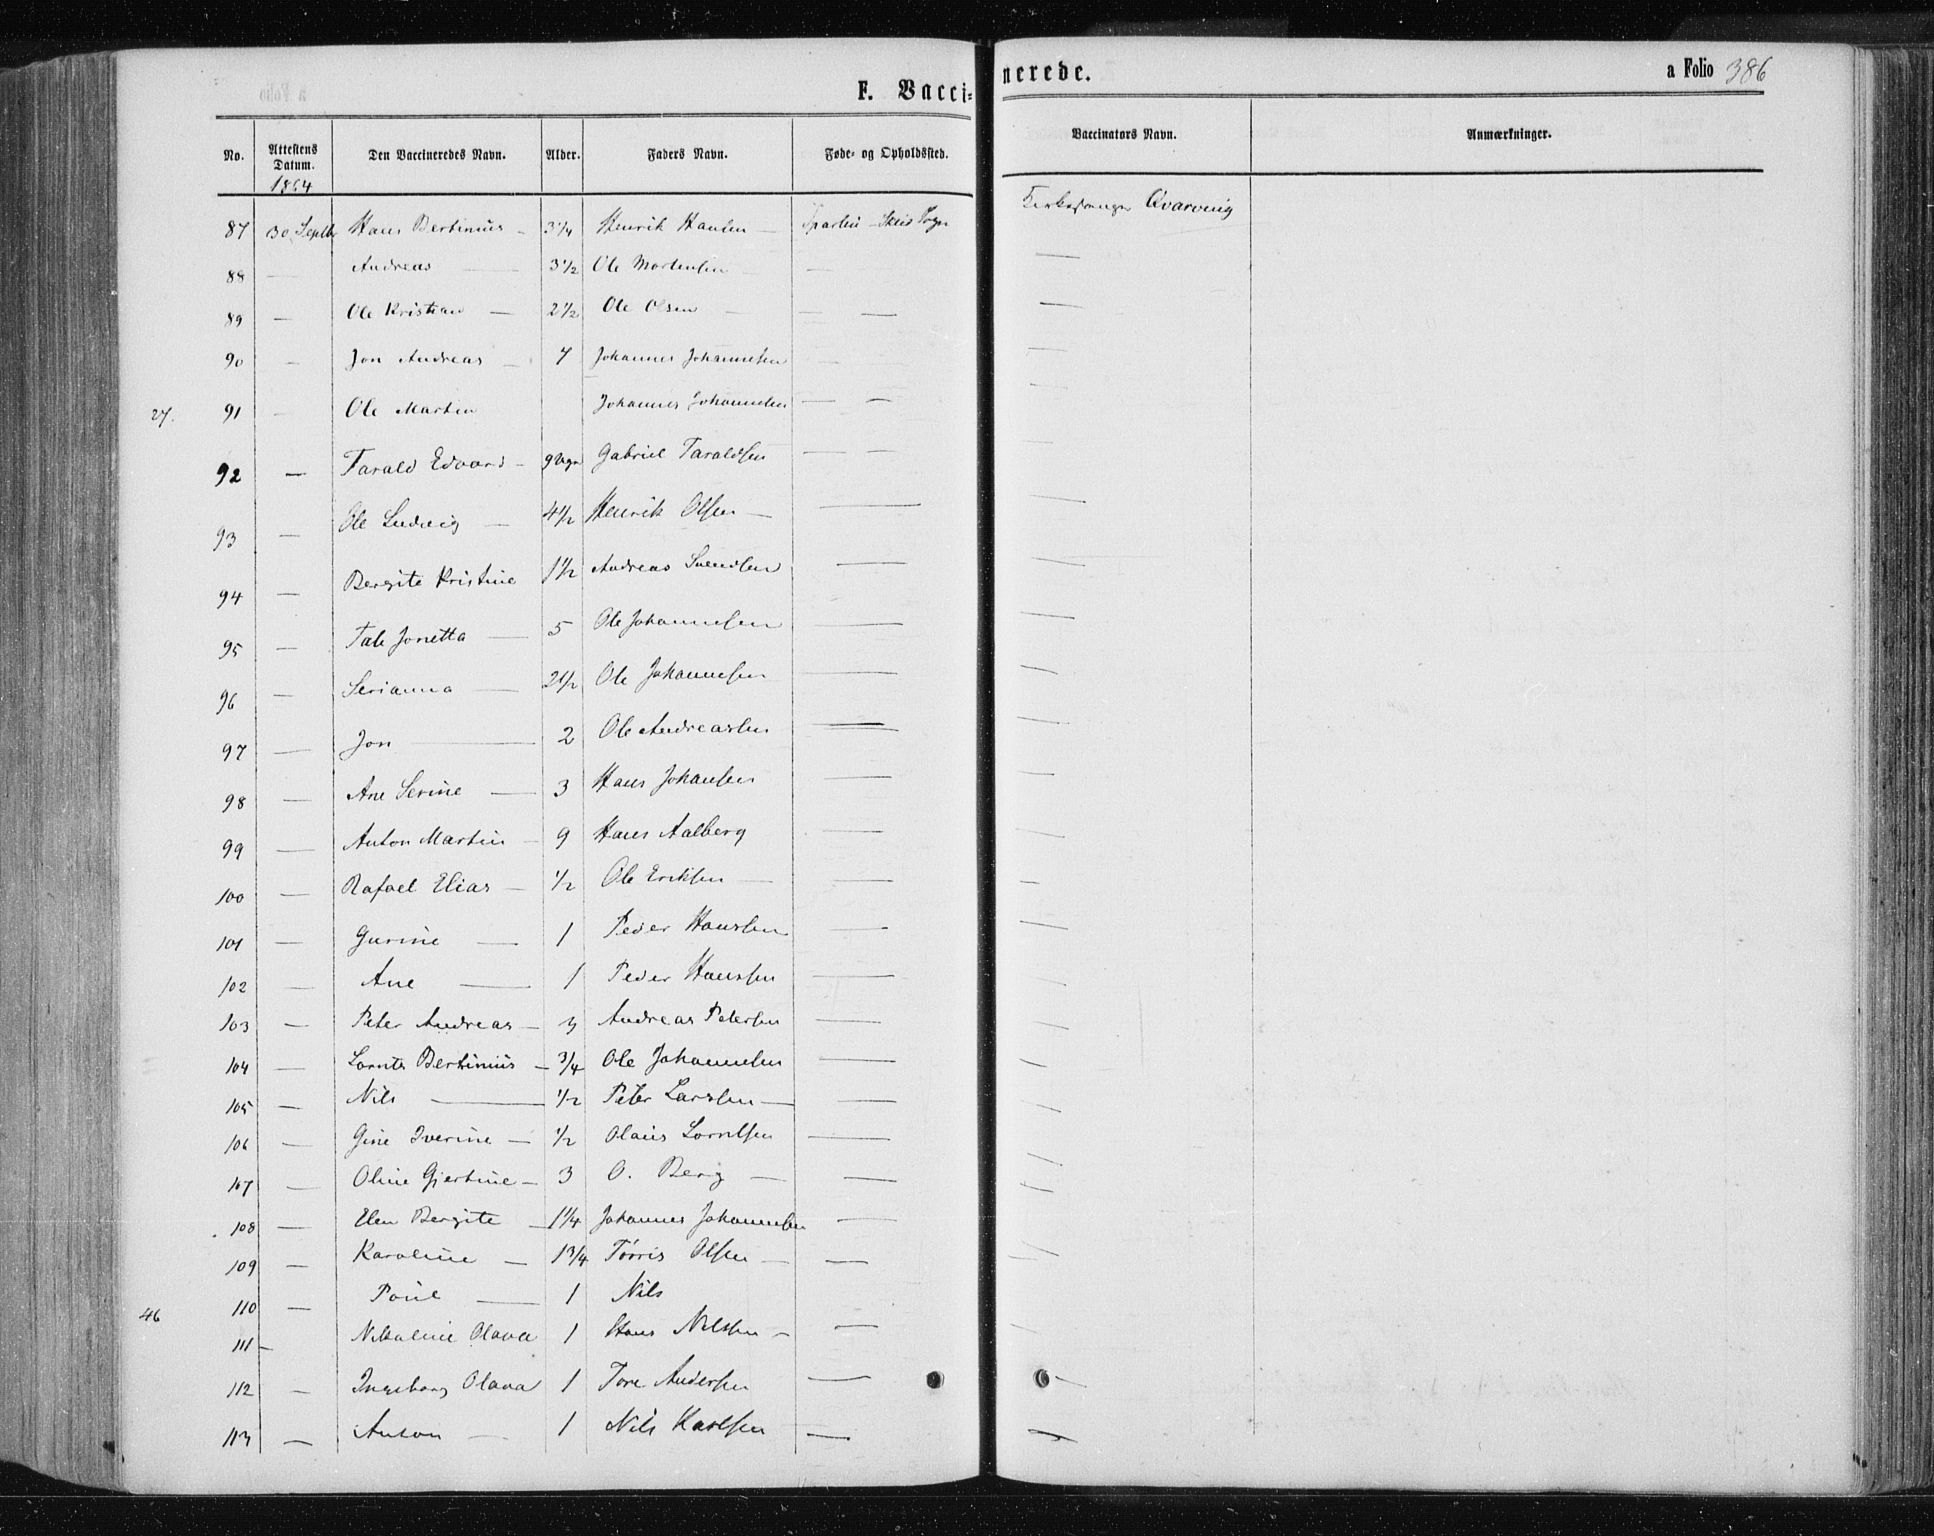 F. Vacci-
nerede.
a Folio 386
No. Attestens Datum. Den Vaccineredes Navn. Alder. Faders Navn. Føde- og Opholdssted. Vaccinators Navn. Anmærkninger.
1864
87 30 Septbr Hans Bertinius - 3 1/4 Henrik Hansen - Sparbu - Skeis Sogn Kirkesanger Qvarving
88 — Andreas — 3 1/2 Ole Mortensen — —
89 — Ole Kristian — 2 1/2 Ole Olsen — — — —
90 — Jon Andreas - 7 Johannes Johannesen — —
27. 91 — Ole Martin Johannes Johannesen — — —
92 — Tarald Edvard - 9 Ugr Gabriel Taraldsen — — —
93 — Ole Ludvig — 4 1/2 Henrik Olsen — — —
94 — Bergite Kristine 1 1/2 Andreas Svendsen — —
95 — Tale Jonetta — 5 Ole Johannesen — —
96 — Serianna — 2 1/2 Ole Johannesen — —
97 — Jon — 2 Ole Andreassen — —
98 — Ane Serine — 3 Hans Johansen — —
99 — Anton Martin - 9 Hans Aalberg — —
100 — Rafael Elias — 1/2 Ole Eriksen — —
101 — Gurine — 1 Peder Hanssen — —
102 — Ane — 1 Peder Hanssen — —
103 — Peter Andreas — 3 Andreas Petersen — —
104 — Lornts Bertinius — 3/4 Ole Johannesen — —
105 — Nils — 1/2 Peter Larssen — — —
106 — Gine Iverine — 1/2 Olaus Lorntsen — —
107 — Oline Gjertine — 3 O. Berg — — —
108 — Elen Bergite — 1 1/4 Johannes Johannesen — —
109 — Karoline — 1 3/4 Tørris Olsen — — —
46 110 — Poul — 1 Nils
111 - Nikoline Olava 1 Hans Nilssen - — —
112 — Ingeborg Olava 1 Tore Andersen — —
113 — Anton — 1 Nils Karlsen — —